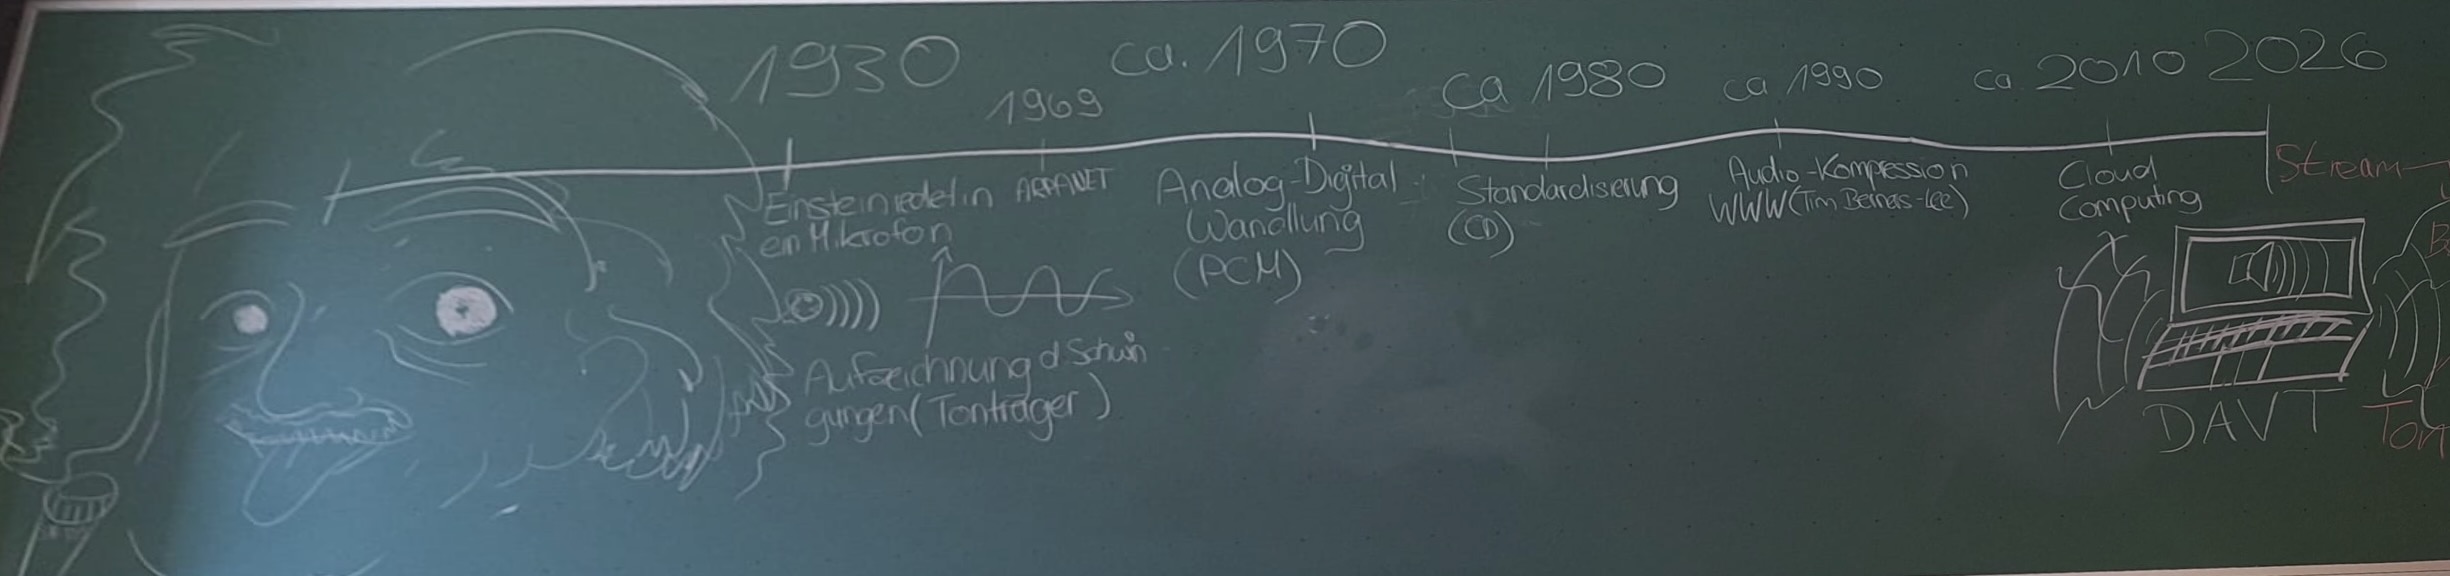 1930
1969
ca. 1970
ca 1980
ca 1990
ca. 2010
2026
Einstein redet in
ein Mikrofon
ARPANET
Aufzeichnung d Schwin
gungen (Tonträger)
Analog-Digital
Wandlung
(PCM)
Standardisierung
(CD)
Audio-Kompression
WWW (Tim Berners-Lee)
Cloud
Computing
Stream
DAVT
Ton